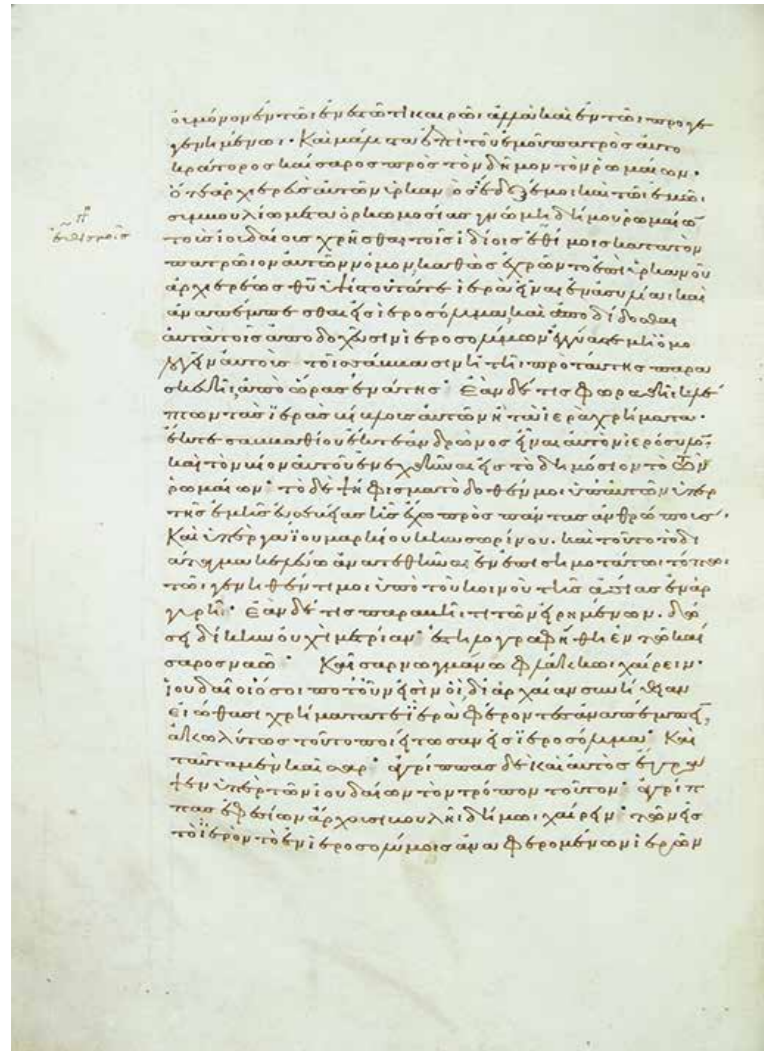 οὐ μόνον ἐν τῶι ἐνεστῶτι καιρῶι ἀλλὰ καὶ ἐν τῶι προγε
γενημένωι· Καὶ μάλιστα ἐπὶ τοῦ ἐμοῦ πατρὸς αὐτο
κράτορος καίσαρος πρὸς τὸν δῆμον τὸν ῥωμαίων·
ὅ τε ἀρχιερεὺς αὐτῶν ὑρκανὸς ἔδοξέ μοι καὶ τῶι ἐμῶι
συμβουλίω μετὰ ὁρκωμοσίας γνώμη δήμου ῥωμαίω̅
τοὺς ἰουδαίους χρῆσθαι τοῖς ἰδίοις ἐθίμοις κατὰ τὸν
πατρῶιον αὐτῶν νόμον, καθὼς ἐχρῶντο ἐπὶ ὑρκανοῦ
ἀρχιερέως θῦ ὑψίστου τά τε ἱερὰ εἶναι ἐν ἀσυλίαι καὶ
ἀναπέμπεσθαι εἰς ἱεροσόλυμα, καὶ ἀποδίδοσθαι
αὐτὰ τοῖς ἀποδοχεῦσιν ἱεροσολύμων ἐγγύας τε μὴ ὁμο
λογεῖν αὐτοὺς τοῖς σάββασιν ἢ τῆι πρὸ ταύτης παρα
σκευῆι, ἀπὸ ὥρας ἐνάτης· Ἐὰν δέ τις φωραθῆι κλέ
πτων τὰς ἱερὰς βίβλους αὐτῶν ἢ τὰ ἱερὰ χρήματα·
ἔκ τε σαββαθίου ἔκ τε ἀνδρῶνος εἶναι αὐτὸν ἱερόσυλο̅·
καὶ τὸν βίον αὐτοῦ ἐνεχθῆναι εἰς τὸ δημόσιον τῶν
ῥωμαίων· τό δε ψήφισμα τὸ δοθέν μοι ὑπ' αὐτῶν ὑπὲρ
τῆς ἐμῆς εὐσεβείας ἧς ἔχω πρὸς πάντας ἀνθρώπους·
Καὶ ὑπὲρ γαΐου μαρκίου κηνσωρίνου. καὶ τοῦτο τὸ δι
άταγμα κελεύω ἀνατεθῆναι ἐν ἐπισημοτάτωι τόπωι
τῶι γενηθέντι μοι ὑπὸ τοῦ κοινοῦ τῆς ἀσίας ἐν ἀρ
γυρῆι· Ἐὰν δέ τις παραβῆι τι τῶν εἰρημένων. δώ
σει δίκην οὐ μετρίαν· ἐστηλογραφήθη ἐν τῶ καί
σαρος ναῶ· Καῖσαρ νωρβανῶ φλάκκωι χαίρειν·
ἰουδαῖοι ὅσοι ποτ' οὖν εἰσὶν οἳ δι' ἀρχαίαν συνήθειαν
εἰώθασι χρήματά τε ἱερὰ φέροντες ἀναπέμπει̅,
ἀκωλύτως τοῦτο ποιείτωσαν εἰς ἱεροσόλυμα· Καὶ
ταῦτα μὲν καῖσαρ· ἀγρίππας δὲ καὶ αὐτὸς ἔγρα
ψεν ὑπὲρ τῶν ἰουδαίων τὸν τρόπον τοῦτον· ἀγρίπ
πας ἐφεσίων ἄρχουσι βουλῆι δήμωι χαίρειν· τῶν εἰς
τὸ ἱερὸν τὸ ἐν ἱεροσολύμοις ἀναφερομένων ἱερῶν